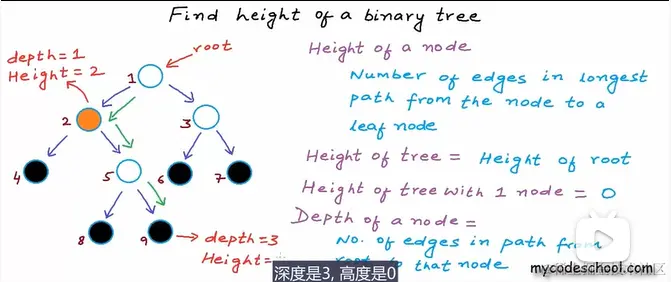 Find height of a binary tree
depth=1
Height=2
root
1
2
3
4
5
6
7
8
9
depth=3
Height=
Height of a node
Number of edges in longest
path from the node to a
leaf node
Height of tree = Height of root
Height of tree with 1 node = 0
Depth of a node =
No. of edges in path from
root to that node
深度是3, 高度是0
mycodeschool.com